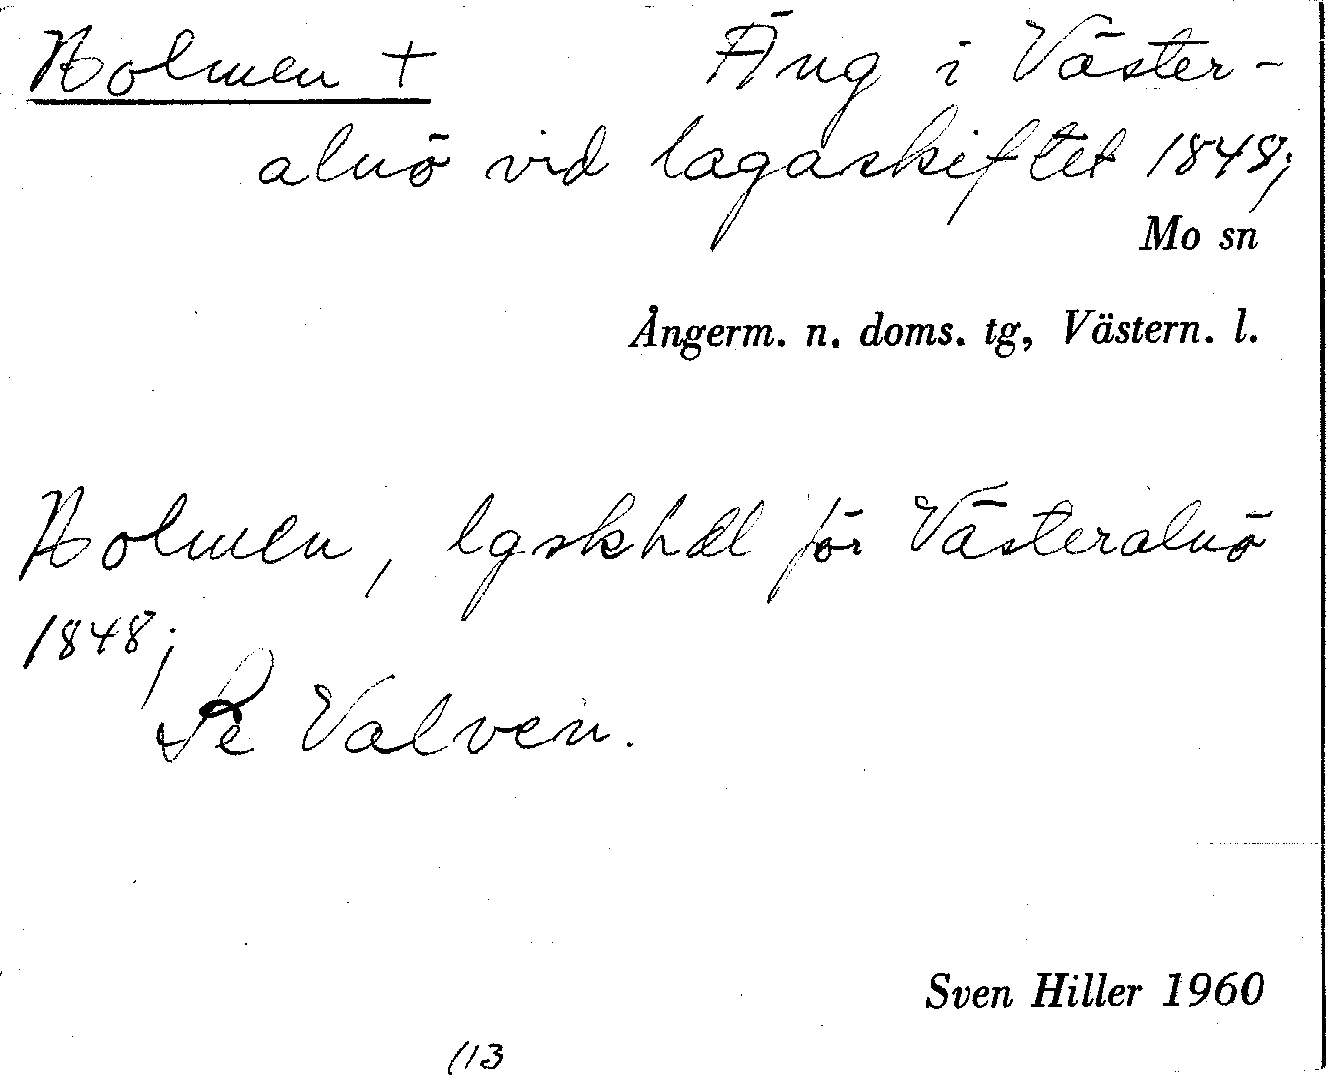 Holmen + Äng i Väster-
alnö vid lagaskiftet 1848;
Mo sn
Ångerm. n. doms. tg, Västern. l.
Holmen, lgskhdl för Västeralnö
1848;
Se Valven.
Sven Hiller 1960
(13